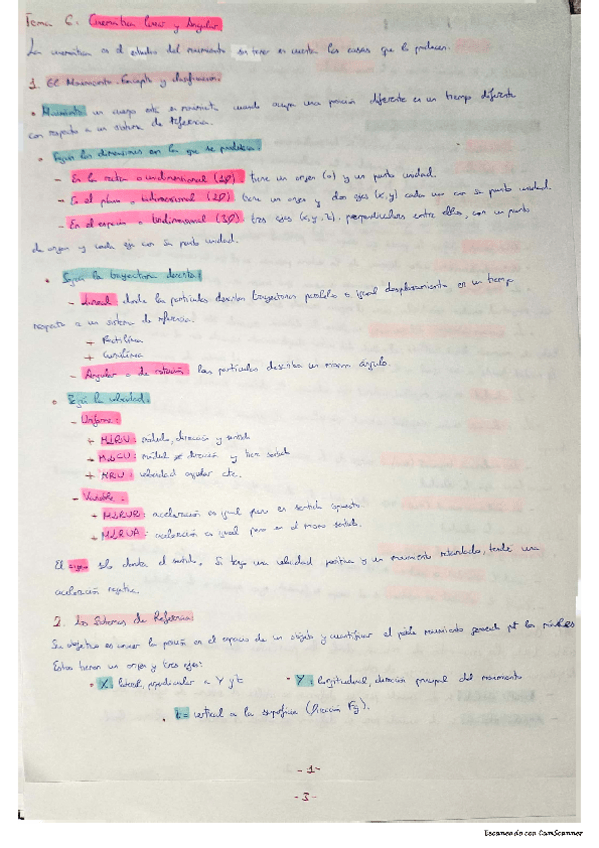 Tema 6: Cinemática Lineal y Angular
La cinemática es el estudio del movimiento sin tener en cuenta las causas que lo producen.
1. El Movimiento. Concepto y clasificación.
• Movimiento un cuerpo está en movimiento cuando ocupa una posición diferente en un tiempo diferente
con respecto a un sistema de referencia.
• Según las dimensiones en la que se produce:
- En la recta o unidimensional (1D) tiene un origen (0) y un punto unidad.
- En el plano o bidimensional (2D) tiene un origen y dos ejes (x,y) cada uno con su punto unidad.
- En el espacio o tridimensional (3D) tres ejes (x,y,z), perpendiculares entre ellos, con un punto
de origen y cada eje con su punto unidad.
• Según la trayectoria descrita:
- Lineal donde las partículas describen trayectorias paralelas e igual desplazamiento en un tiempo
respecto a un sistema de referencia.
+ Rectilínea
+ Curvilínea
- Angular o de rotación las partículas describen un mismo ángulo.
• Según la velocidad.
- Uniforme:
+ MLRU: módulo, dirección y sentido
+ MLCU: módulo dirección y tiene sentido
+ velocidad angular cte.
- Variable.
+ MLRUR: aceleración es igual pero en sentido opuesto.
+ MLRUA: aceleración es igual pero en el mismo sentido.
El signo solo denota el sentido. Si tengo una velocidad positiva y un movimiento retardado, tendré una
aceleración negativa.
2. Los Sistemas de Referencia
Su objetivo es conocer la posición en el espacio de un objeto y cuantificar el movimiento generado por los
Estos tienen un origen y tres ejes:
• X: lateral, perpendicular a Y y Z • Y: longitudinal, dirección principal del movimiento
• Z= vertical a la superficie (Dirección Fg).
-1-
-3-
Escaneado con CamScanner